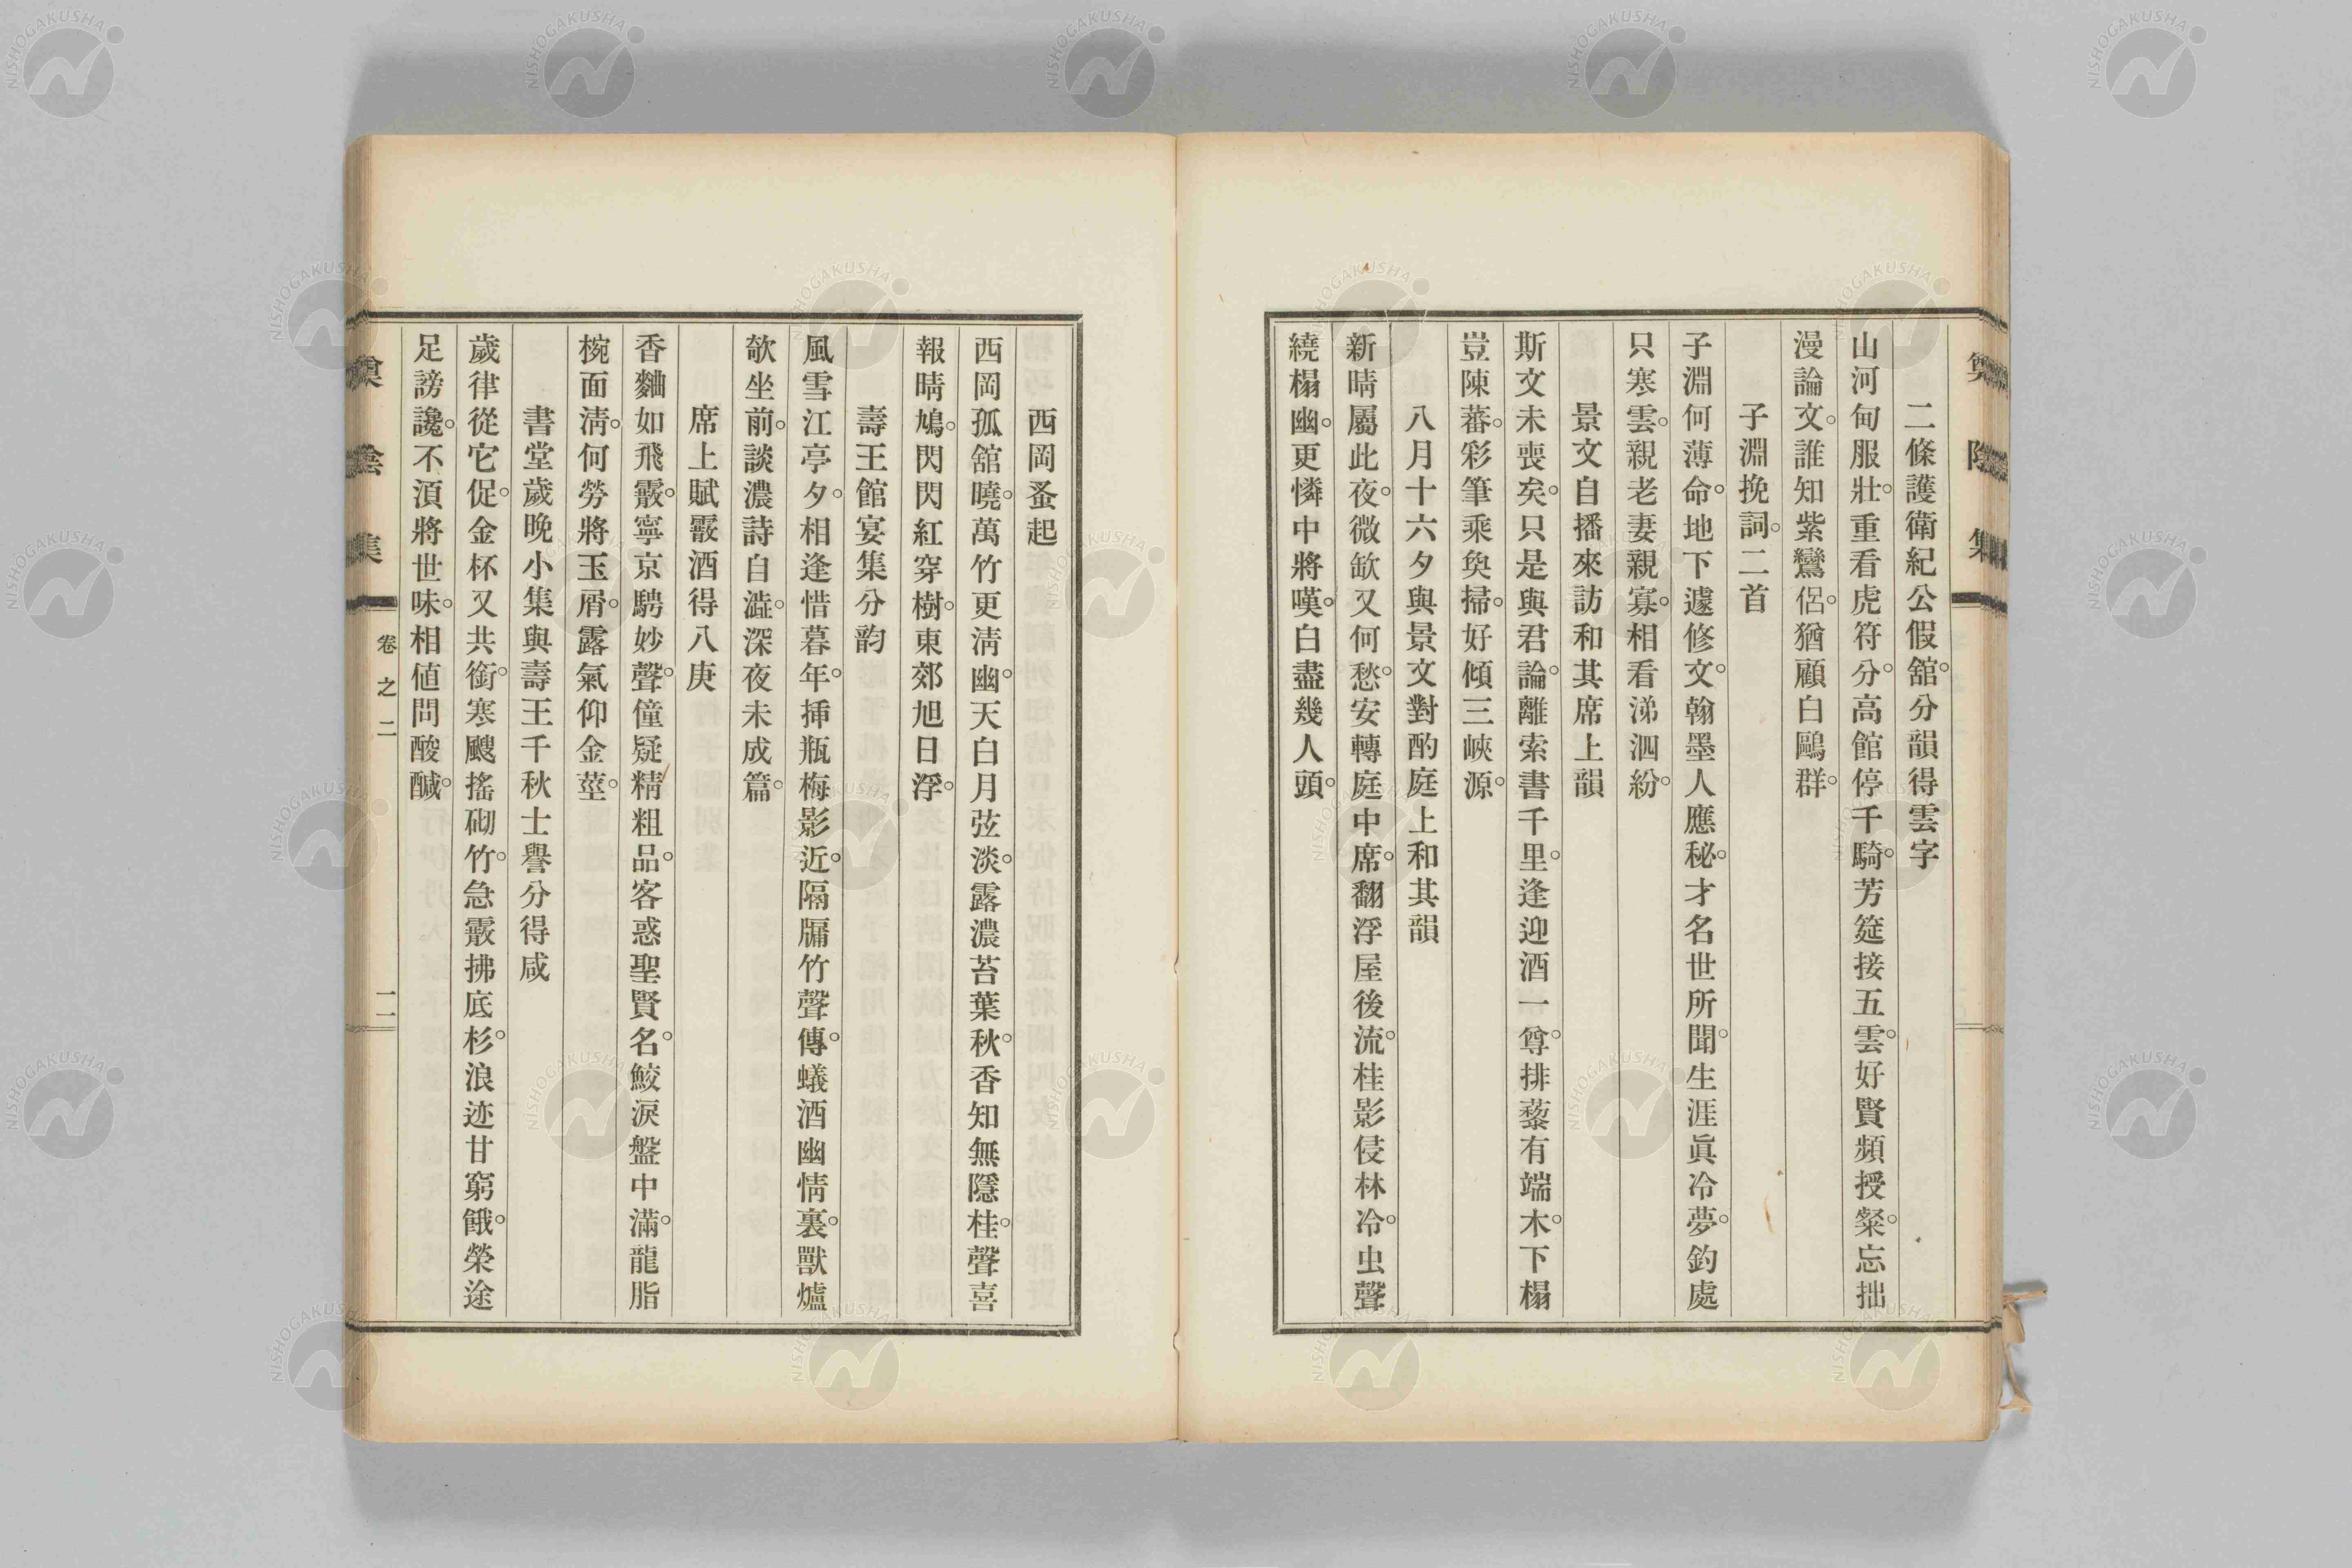 二條護衛紀公假舘。分韻得雲字
山河甸服壯。重看虎符分。高館停千騎。芳筵接五雲。好賢頻授粲。忘拙
漫論文。誰知紫鸞侶。猶顧白鷗群。
子淵挽詞。二首
子淵何薄命。地下遽修文。翰墨人應秘。才名世所聞。生涯眞冷夢。釣處
只寒雲。親老妻親寡。相看涕泗紛。
景文自播來訪和其席上韻
斯文未喪矣。只是與君論。離索書千里。逢迎酒一尊。排藜有端木。下榻
豈陳蕃。彩筆乘奐掃。好傾三峽源。
八月十六夕與景文對酌庭上和其韻
新晴屬此夜。微缺又何愁。安轉庭中席。翻浮屋後流。桂影侵林冷。虫聲
繞榻幽。更憐中將嘆。白盡幾人頭。
西岡蚤起
西岡孤舘曉。萬竹更淸幽。天白月弦淡。露濃苔葉秋。香知無隱桂。聲喜
報晴鳩。閃閃紅穿樹。東郊旭日浮。
壽王館宴集分韵
風雪江亭夕。相逢惜暮年。挿瓶梅影近。隔牖竹聲傳。蟻酒幽情裏。獸爐
欹坐前。談濃詩自澁。深夜未成篇。
席上賦霰酒得八庚
香麯如飛霰。寧京騁妙聲。僮疑精粗品。客惑聖賢名。鮫淚盤中滿。龍脂
椀面淸。何勞將玉屑。露氣仰金莖。
書堂歲晚小集與壽王千秋士譽分得咸
歲律從它促。金杯又共銜。寒颼搖砌竹。急霰拂底杉。浪迹甘窮餓。榮途
足謗讒。不湏將世味。相値問酸醎。
奠陰集
卷之二
一一
NISHOGAKUSHA